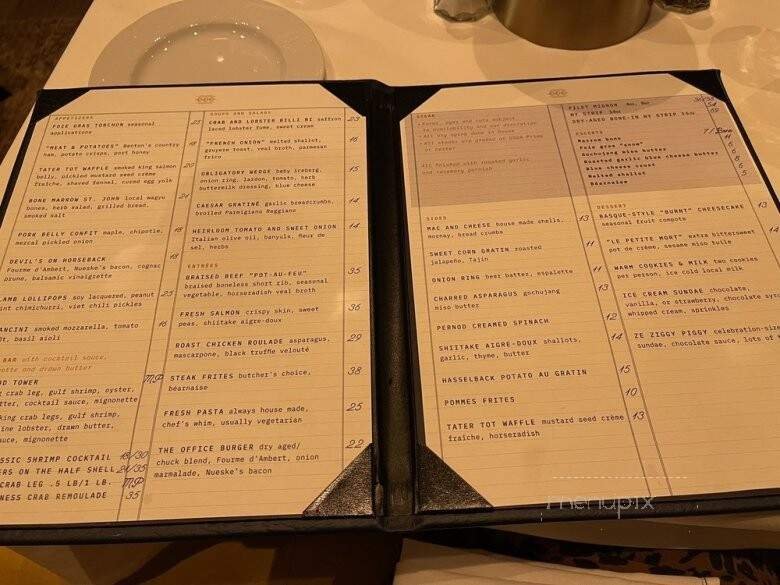 APPETIZERS
FOIE GRAS TORCHON seasonal 25
applications
"MEAT & POTATOES" Benton's country 18
ham, potato crisps, post honey
TATER TOT WAFFLE smoked king salmon 20
belly, pickled mustard seed crème
fraîche, shaved fennel, cured egg yolk
BONE MARROW ST. JOHN local wagyu 21
bones, herb salad, grilled bread,
smoked salt
PORK BELLY CONFIT maple, chipotle, 18
mezcal pickled onion
DEVIL'S ON HORSEBACK
Fourme d'Ambert, Nueske's bacon, cognac
prune, balsamic vinaigrette
LAMB LOLLIPOPS soy lacquered, peanut 25
mint chimichurri, viet chili pickles
smoked mozzarella, tomato 16
basil aioli
BAR with cocktail sauce,
and drawn butter
TOWER MP
crab leg, gulf shrimp, oyster,
butter, cocktail sauce, mignonette
king crab legs, gulf shrimp,
lobster, drawn butter,
sauce, mignonette
SHRIMP COCKTAIL 18/30
ON THE HALF SHELL
CRAB LEG .5 LB/1 LB. MP
CRAB REMOULADE 35
SOUPS AND SALADS
CRAB AND LOBSTER BILLI BI saffron 23
laced lobster fume, sweet cream
"FRENCH ONION" melted shallot, 16
gruyere toast, veal broth, parmesan
frico
OBLIGATORY WEDGE baby iceberg, 15
onion ring, lardon, tomato, herb
buttermilk dressing, blue cheese
CAESAR GRATINÉ garlic breadcrumbs, 14
broiled Parmigiano Reggiano
HEIRLOOM TOMATO AND SWEET ONION 14
Italian olive oil, banyuls, fleur de
sel, herbs
ENTREES
BRAISED BEEF "POT-AU-FEU" 35
braised boneless short rib, seasonal
vegetable, horseradish veal broth
FRESH SALMON crispy skin, sweet 36
peas, chiitake aigre-doux
ROAST CHICKEN ROULADE asparagus, 29
mascarpone, black truffle velouté
STEAK FRITES butcher's choice, 38
béarnaise
FRESH PASTA always house made, 25
chef's whim, usually vegetarian
THE OFFICE BURGER dry aged/ 22
chuck blend, Fourme d'Ambert, onion
marmalade, Nueske's bacon
STEAK
Farms, ages and cuts subject
to availability and our discretion
All dry aging done in house
All steaks are graded at USDA Prime
or better
All finished with roasted garlic
and rosemary garnish
FILET MIGNON
NY STRIP 54
DRY-AGED BONE-IN NY STRIP
ESCORTS
Marrow bone
Foie gras "snow"
Gochujang miso butter
Roasted garlic blue cheese butter
Blue cheese crust
Melted shallot
Béarnaise 5
SIDES
MAC AND CHEESE house made shells, 13
mornay, bread crumbs
SWEET CORN GRATIN roasted 11
jalapeño, Tajin
ONION RING beer batter, espelette 11
CHARRED ASPARAGUS gochujang 13
miso butter
PERNOD CREAMED SPINACH 12
SHIITAKE AIGRE-DOUX shallots, 14
garlic, thyme, butter
HASSELBACK POTATO AU GRATIN 15
POMMES FRITES 10
TATER TOT WAFFLE mustard seed crème 13
fraîche, horseradish
DESSERT
BASQUE-STYLE "BURNT" CHEESECAKE 13
seasonal fruit compote
"LE PETITE MORT" extra bittersweet 14
pot de crème, sesame miso tuile
WARM COOKIES & MILK two cookies
per person, ice cold local milk
ICE CREAM SUNDAE chocolate,
vanilla, or strawberry, chocolate
whipped cream, sprinkles
ZE ZIGGY PIGGY
sundae, chocolate sauce, lots of
menupix